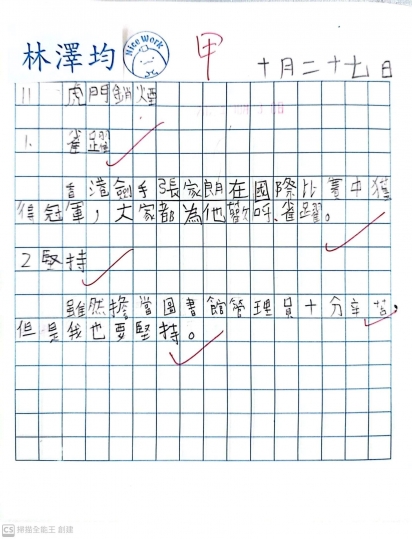 林澤均 Nice Work 甲 十月二十七日
11 虎門銷煙
1. 雀躍
香港劍手張家朗在國際比賽中獲
得冠軍，大家都為他歡呼、雀躍。
2 堅持
雖然擔當圖書館管理員十分辛苦，
但是我也要堅持。
CS 掃描全能王 創建